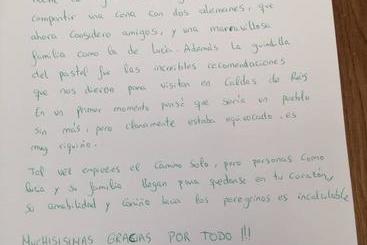 compartir una cena con dos alemanes, que
ahora considero amigos, y una maravillosa
familia como la de Lucía. Además la guindilla
del pastel fue las increíbles recomendaciones
que nos dieron para visitar en Caldas de Reis
En un primer momento pensé que sería un pueblo
sin más, pero claramente estaba equivocado, es
muy riquiño.
Tal vez empieces el Camino solo, pero personas como
y su familia llegan para quedarse en tu corazón,
su amabilidad y cariño hacia los peregrinos es incalculable
MUCHÍSISIMAS GRACIAS POR TODO !!!